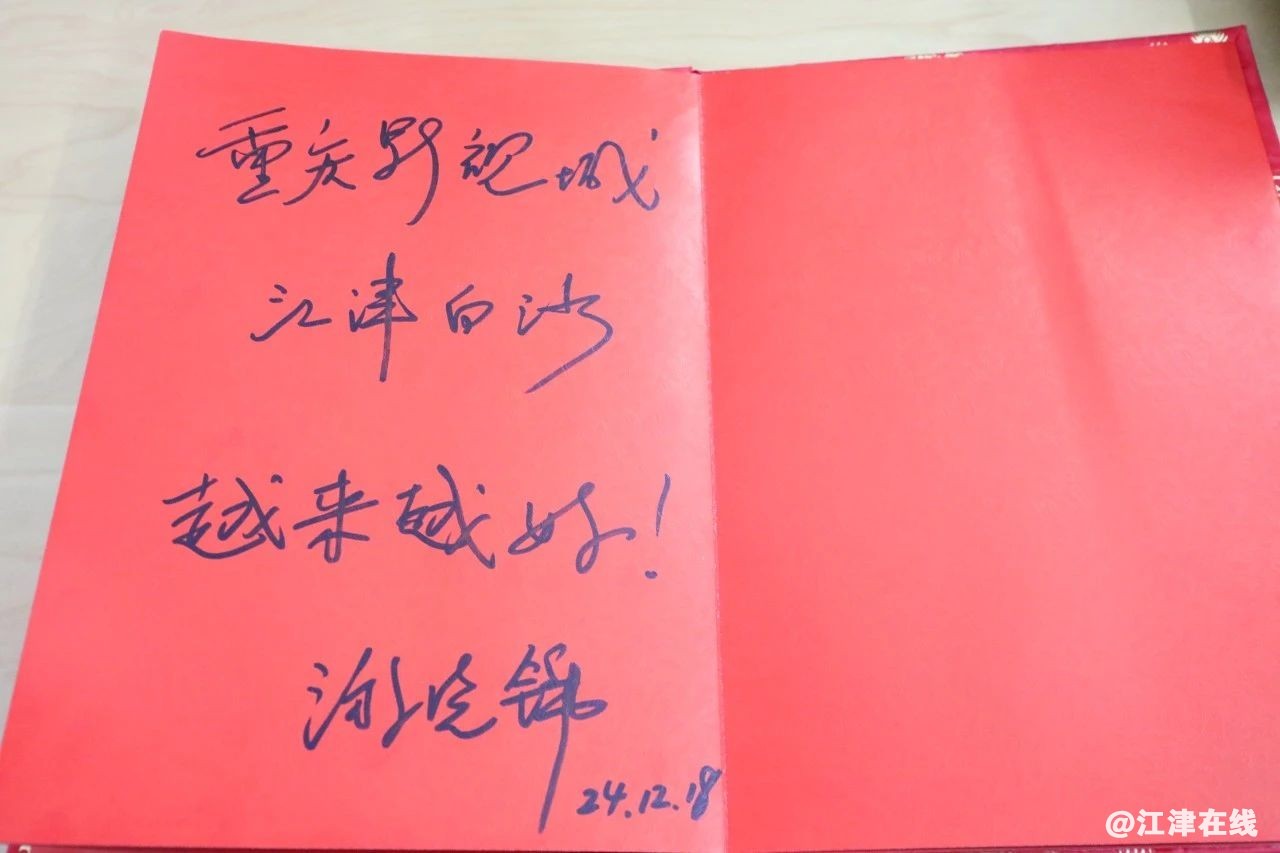 重庆影视城
江津白沙
越来越好！
游晓
24.12.18
@江津在线